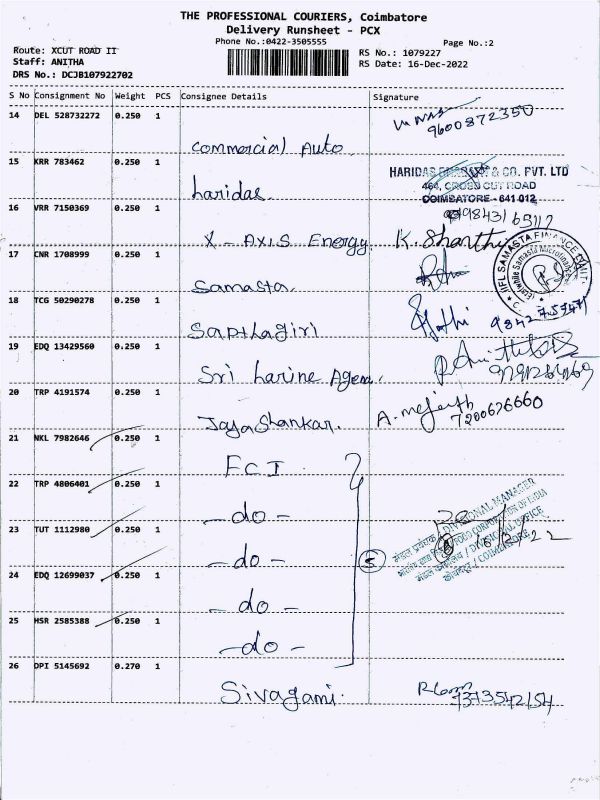 THE PROFESSIONAL COURIERS, Coimbatore
Delivery Runsheet - PCX
Phone No.:0422-3505555
Page No.:2
Route: XCUT ROAD II
Staff: ANITHA
DRS No.: DCJB107922702
RS No.: 1079227
RS Date: 16-Dec-2022
S No Consignment No Weight PCS Consignee Details Signature
14 DEL 528732272 0.250 1
9600872350
Commercial Auto
15 KRR 783462 0.250 1
HARIDAS & CO. PVT. LTD
464, CROSS CUT ROAD
COIMBATORE - 641 012
haridas
16 VRR 7150369 0.250 1
X - AXIS Energy K. Shanthi
17 CNR 1708999 0.250 1
IIFL SAMASTA FINANCE LIMITED
(Erstwhile Samasta Microfinance
Samasta
18 TCG 50290278 0.250 1
Sapthagiri
19 EDQ 13429560 0.250 1
Sri harine Agen.
20 TRP 4191574 0.250 1
Jayashankar. 7200626660
21 NKL 7982646 0.250 1
FCI
22 TRP 4806401 0.250 1
- do -
DIVISIONAL MANAGER
FOOD CORPORATION OF INDIA
मंडल कार्यालय / DIVISIONAL OFFICE
कोयंबतूर / COIMBATORE
23 TUT 1112980 0.250 1
- do -
5
24 EDQ 12699037 0.250 1
- do -
25 HSR 2585388 0.250 1
- do -
26 DPI 5145692 0.270 1
Sivagami. 7373542154